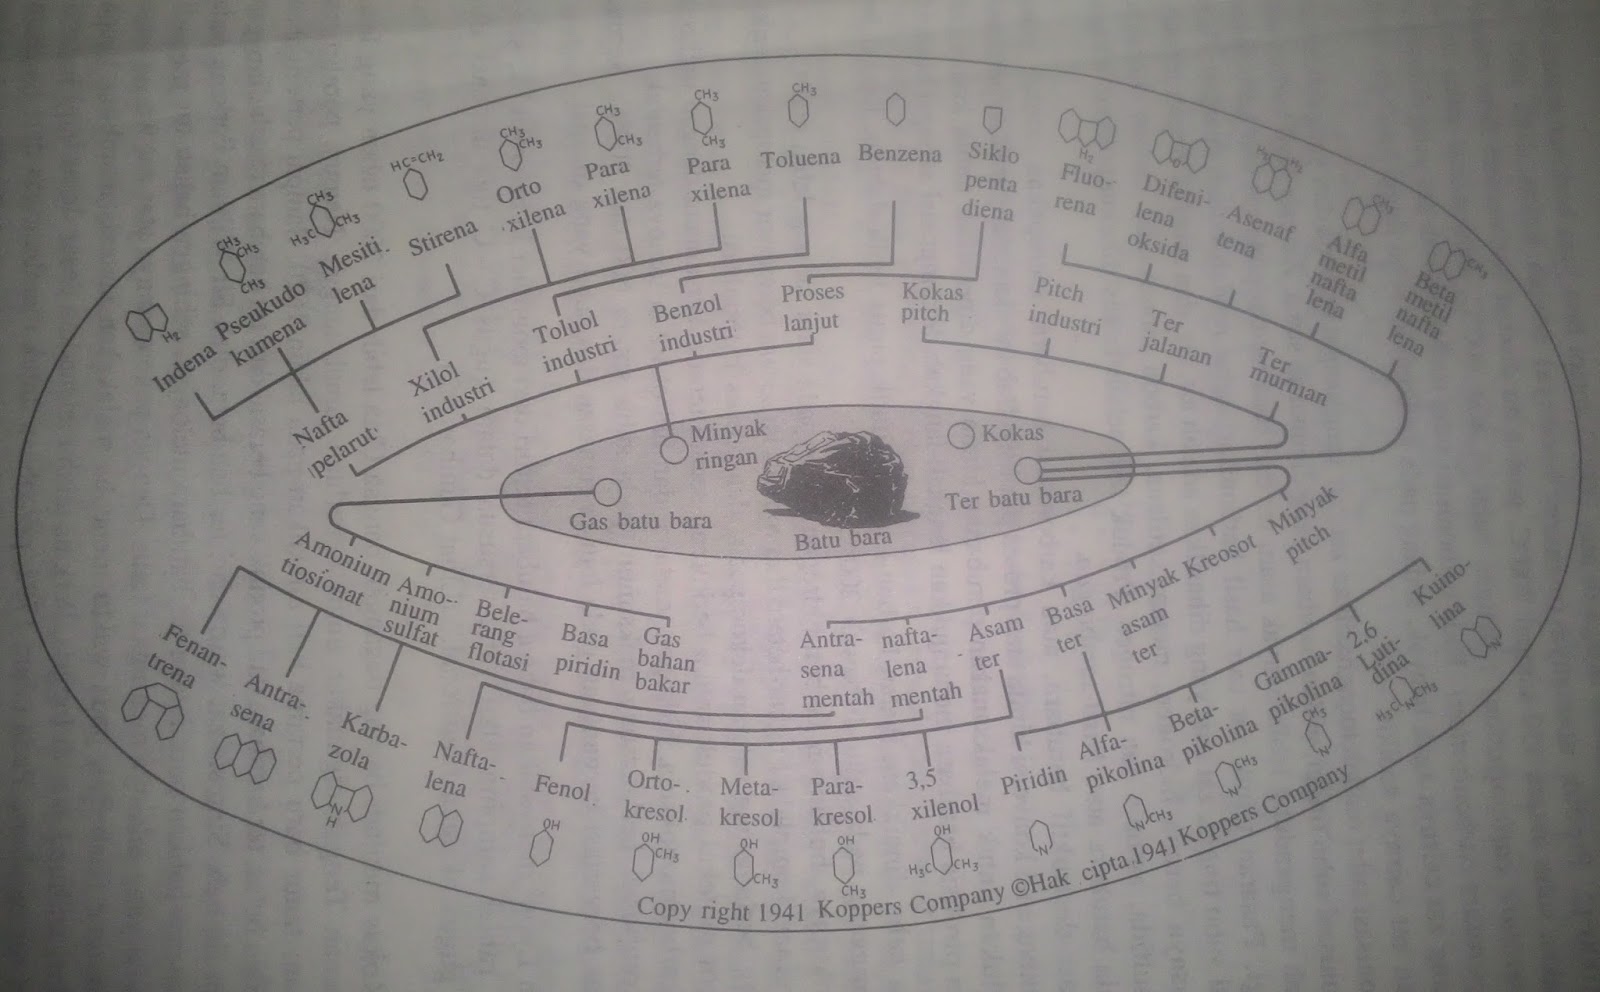 CH₃
CH₃
CH₃
CH₃
CH₃
HC=CH₂
CH₃
CH₃
CH₃
CH₃
H₃C
CH₃
CH₃
CH₃
CH₃
H₂
H₂
O
H₂
H₂
CH₃
CH₃
Indena
Pseukudo
kumena
Mesiti
lena
Stirena
Orto
xilena
Para
xilena
Para
xilena
Toluena
Benzena
Siklo
penta
diena
Fluo-
rena
Difeni-
lena
oksida
Asenaf
tena
Alfa
metil
nafta
lena
Beta
metil
nafta
lena
Nafta
pelarut
Xilol
industri
Toluol
industri
Benzol
industri
Proses
lanjut
Kokas
pitch
Pitch
industri
Ter
jalanan
Ter
murnian
Minyak
ringan
Kokas
Gas batu bara
Batu bara
Ter batu bara
Amonium
tiosionat
Amo-
nium
sulfat
Bele-
rang
flotasi
Basa
piridin
Gas
bahan
bakar
Antra-
sena
mentah
nafta-
lena
mentah
Asam
ter
Basa
ter
Minyak
asam
ter
Kreosot
Minyak
pitch
Fenan-
trena
Antra-
sena
Karba-
zola
Nafta-
lena
Fenol
Orto-
kresol
Meta-
kresol
Para-
kresol
3,5
xilenol
Piridin
Alfa-
pikolina
Beta-
pikolina
Gamma-
pikolina
2,6
Luti-
dina
Kuino-
lina
N
H
OH
OH
CH₃
OH
CH₃
OH
CH₃
OH
H₃C
CH₃
N
N
CH₃
N
CH₃
CH₃
N
H₃C
N
CH₃
N
Copy right 1941 Koppers Company ©Hak cipta 1941 Koppers Company